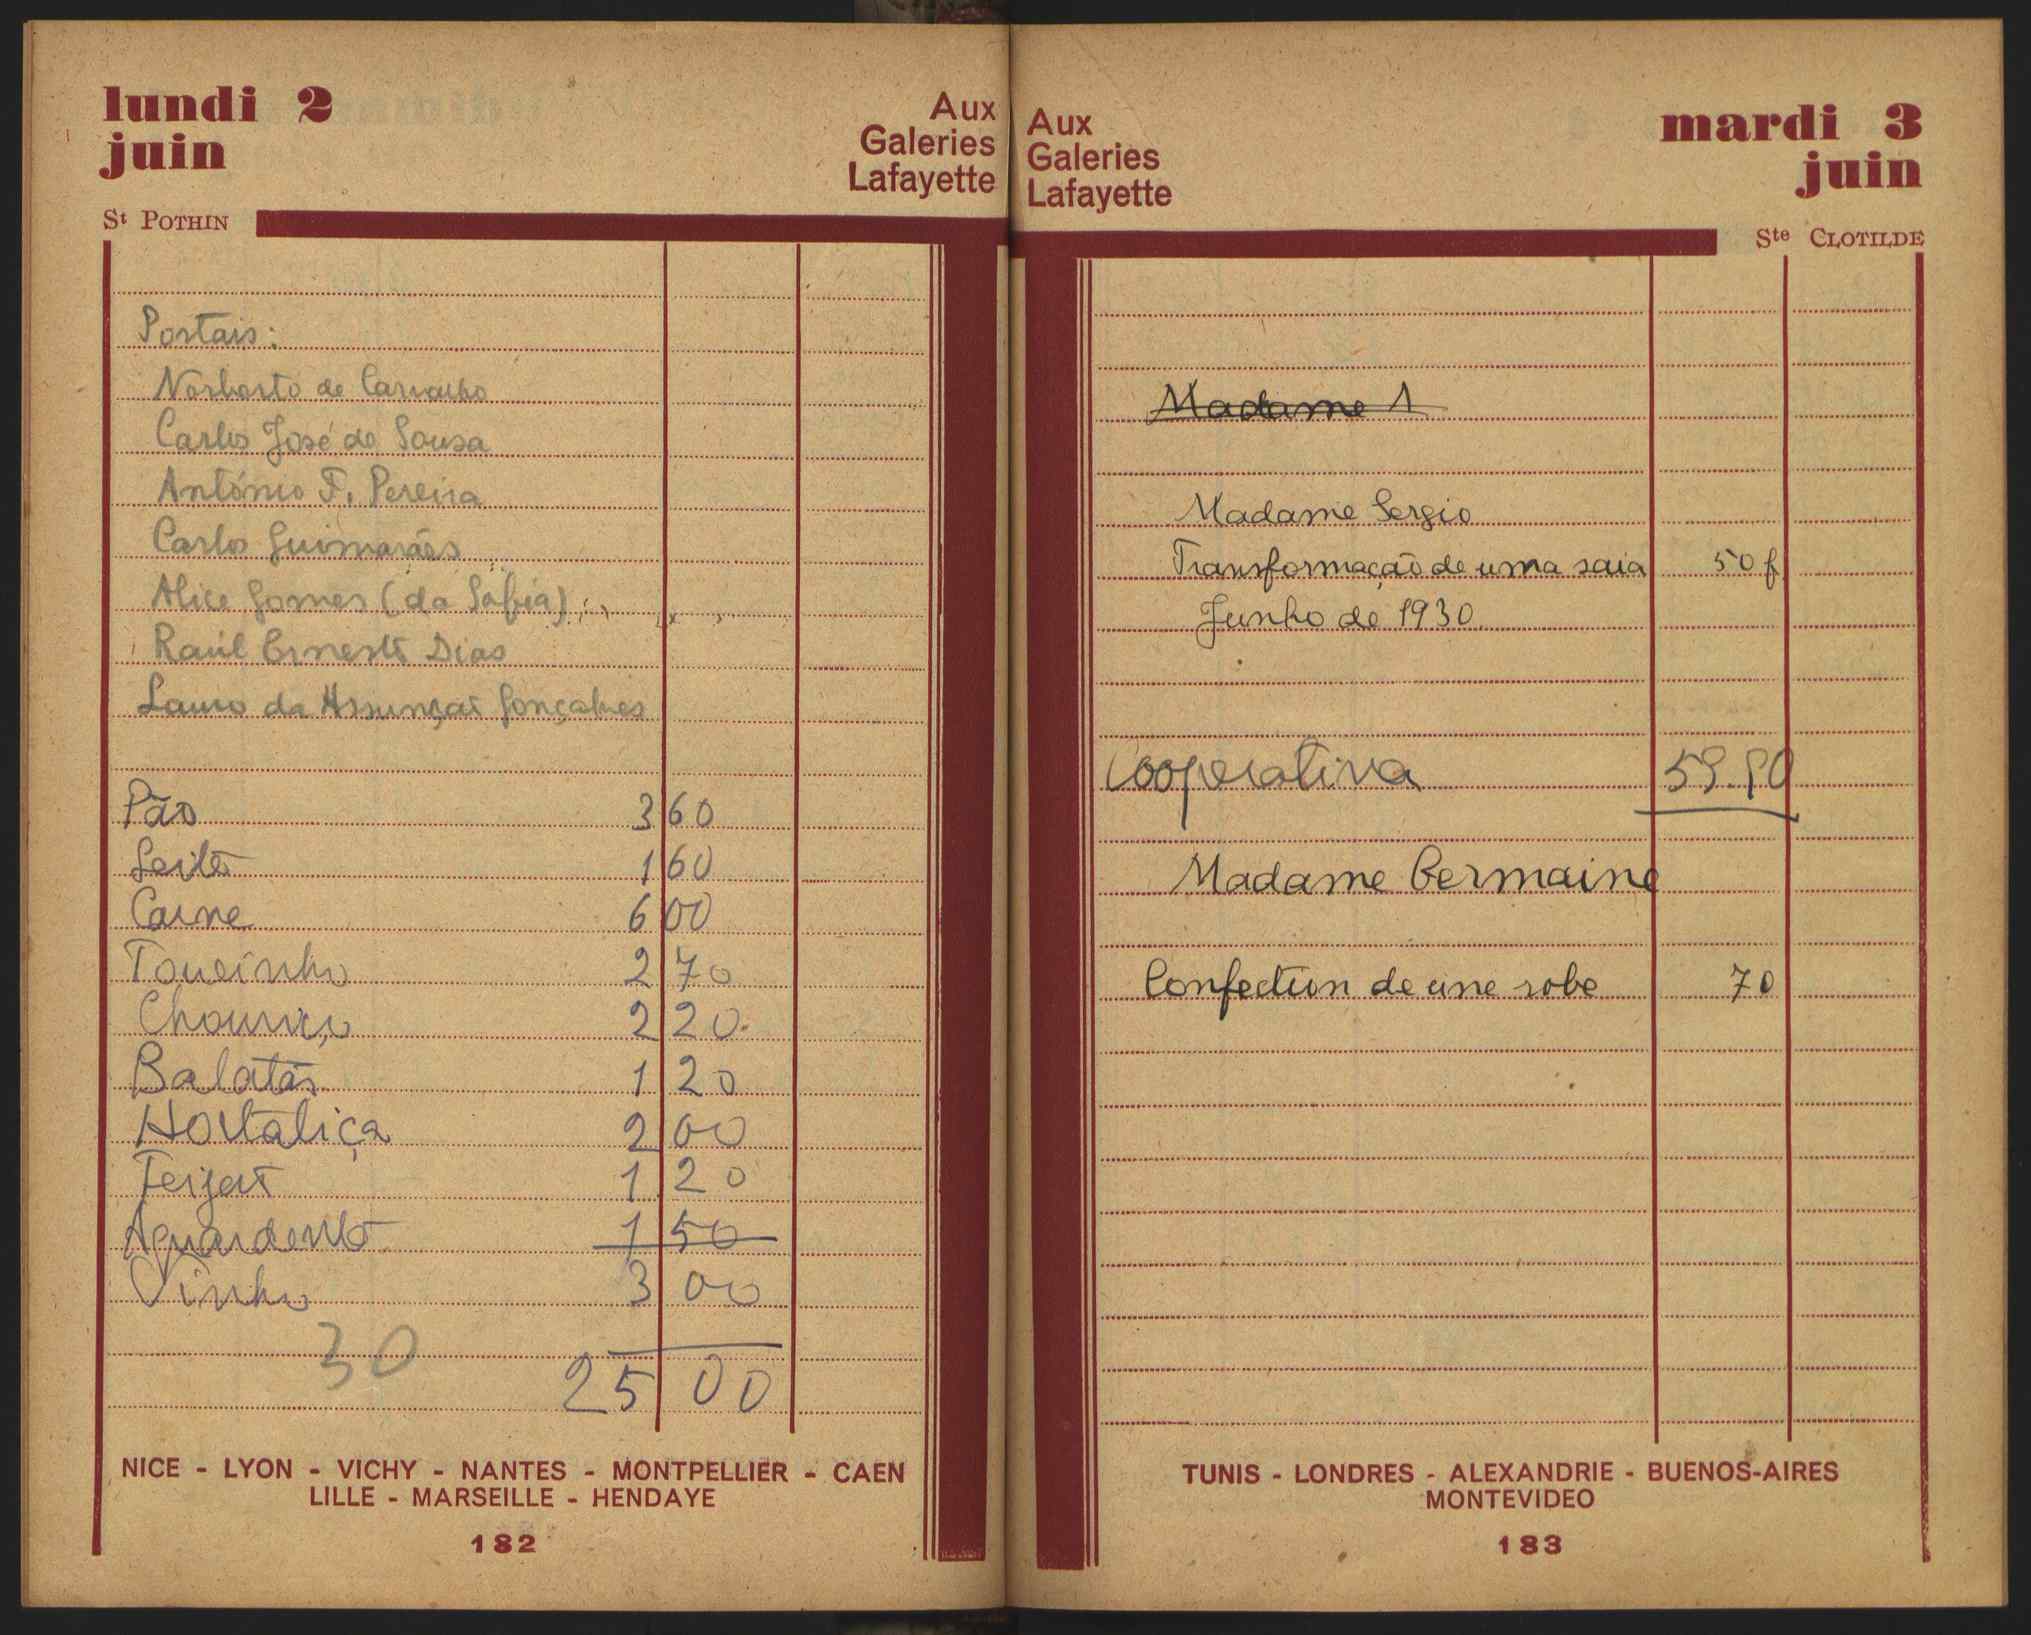 lundi 2
juin
Aux
Galeries
Lafayette
St POTHIN
Postais:
Norberto de Carvalho
Carlos José de Sousa
António F. Pereira
Carlos Guimarães
Alice Gomes (da Sofia)
Raúl Ernesto Dias
Lauro da Assunção Gonçalves
Pão 3 60
Leite 1 60
Carne 6 00
Toucinho 2 70
Chouriço 2 20
Batatas 1 20
Hortaliça 2 00
Feijão 1 20
Aguardente 1 50
Vinho 3 00
30
25 00
NICE - LYON - VICHY - NANTES - MONTPELLIER - CAEN
LILLE - MARSEILLE - HENDAYE
182
Aux
Galeries
Lafayette
mardi 3
juin
Ste CLOTILDE
Madame 1
Madame Sergio
Transformação de uma saia 50 f
Junho de 1930
Cooperativa 59.90
Madame Germaine
Confection de une robe 70
TUNIS - LONDRES - ALEXANDRIE - BUENOS-AIRES
MONTEVIDEO
183